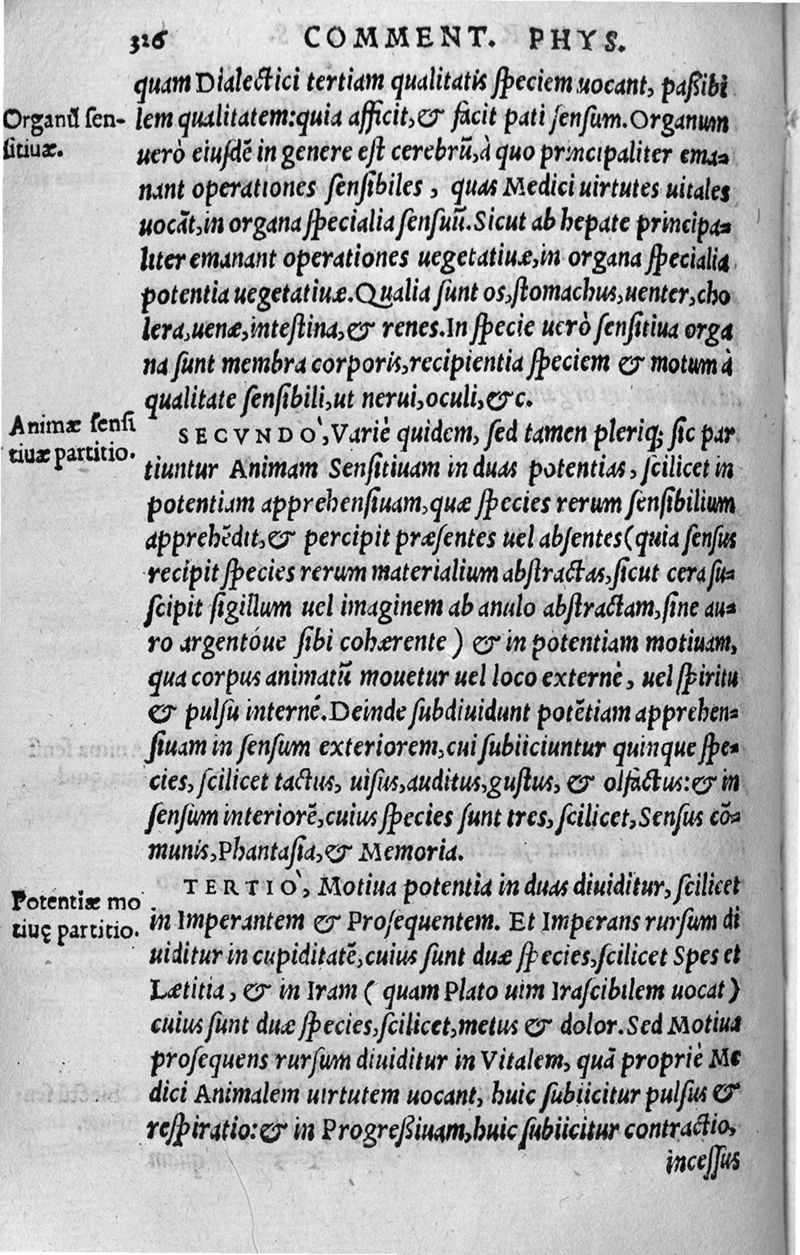 326 COMMENT. PHYS.
quam Dialectici tertiam qualitatis ſpeciem uocant, paßibi
Organū ſen-
ſitiuæ.
lem qualitatem: quia afficit, & facit pati ſenſum. Organum
uerò eiuſdē in genere eſt cerebrū, à quo principaliter ema=
nant operationes ſenſibiles, quas Medici uirtutes uitales
uocāt, in organa ſpecialia ſenſuū. Sicut ab hepate principa=
liter emanant operationes uegetatiuæ, in organa ſpecialia
potentia uegetatiuæ. Qualia ſunt os, ſtomachus, uenter, cho
lera, uenæ, inteſtina, & renes. In ſpecie uerò ſenſitiua orga
na ſunt membra corporis, recipientia ſpeciem & motum à
qualitate ſenſibili, ut nerui, oculi, &c.
Animæ ſenſi
tiuæ partitio.
SECVNDO`, Variè quidem, ſed tamen pleriq; ſic par
tiuntur Animam Senſitiuam in duas potentias, ſcilicet in
potentiam apprehenſiuam, quæ ſpecies rerum ſenſibilium
apprehēdit, & percipit præſentes uel abſentes (quia ſenſus
recipit ſpecies rerum materialium abſtractas, ſicut cera ſu=
ſcipit ſigillum uel imaginem ab anulo abſtractam, ſine au=
ro argentóue ſibi cohærente) & in potentiam motiuam,
qua corpus animatū mouetur uel loco externè, uel ſpiritu
& pulſu interné. Deinde ſubdiuidunt potētiam apprehen=
ſiuam in ſenſum exteriorem, cui ſubiiciuntur quinque ſpe=
cies, ſcilicet tactus, uiſus, auditus, guſtus, & olfactus: & in
ſenſum interiorē, cuius ſpecies ſunt tres, ſcilicet, Senſus cō=
munis, Phantaſia, & Memoria.
Potentiæ mo
tiuę partitio.
TERTIO`, Motiua potentia in duas diuiditur, ſcilicet
in Imperantem & Proſequentem. Et Imperans rurſum di
uiditur in cupiditatē, cuius ſunt duæ ſpecies, ſcilicet Spes et
Lætitia, & in Iram (quam Plato uim Iraſcibilem uocat)
cuius ſunt duæ ſpecies, ſcilicet, metus & dolor. Sed Motiua
proſequens rurſum diuiditur in Vitalem, quā propriè Me
dici Animalem uirtutem uocant, huic ſubiicitur pulſus &
reſpiratio: & in Progreßiuam, huic ſubiicitur contractio,
inceſſus